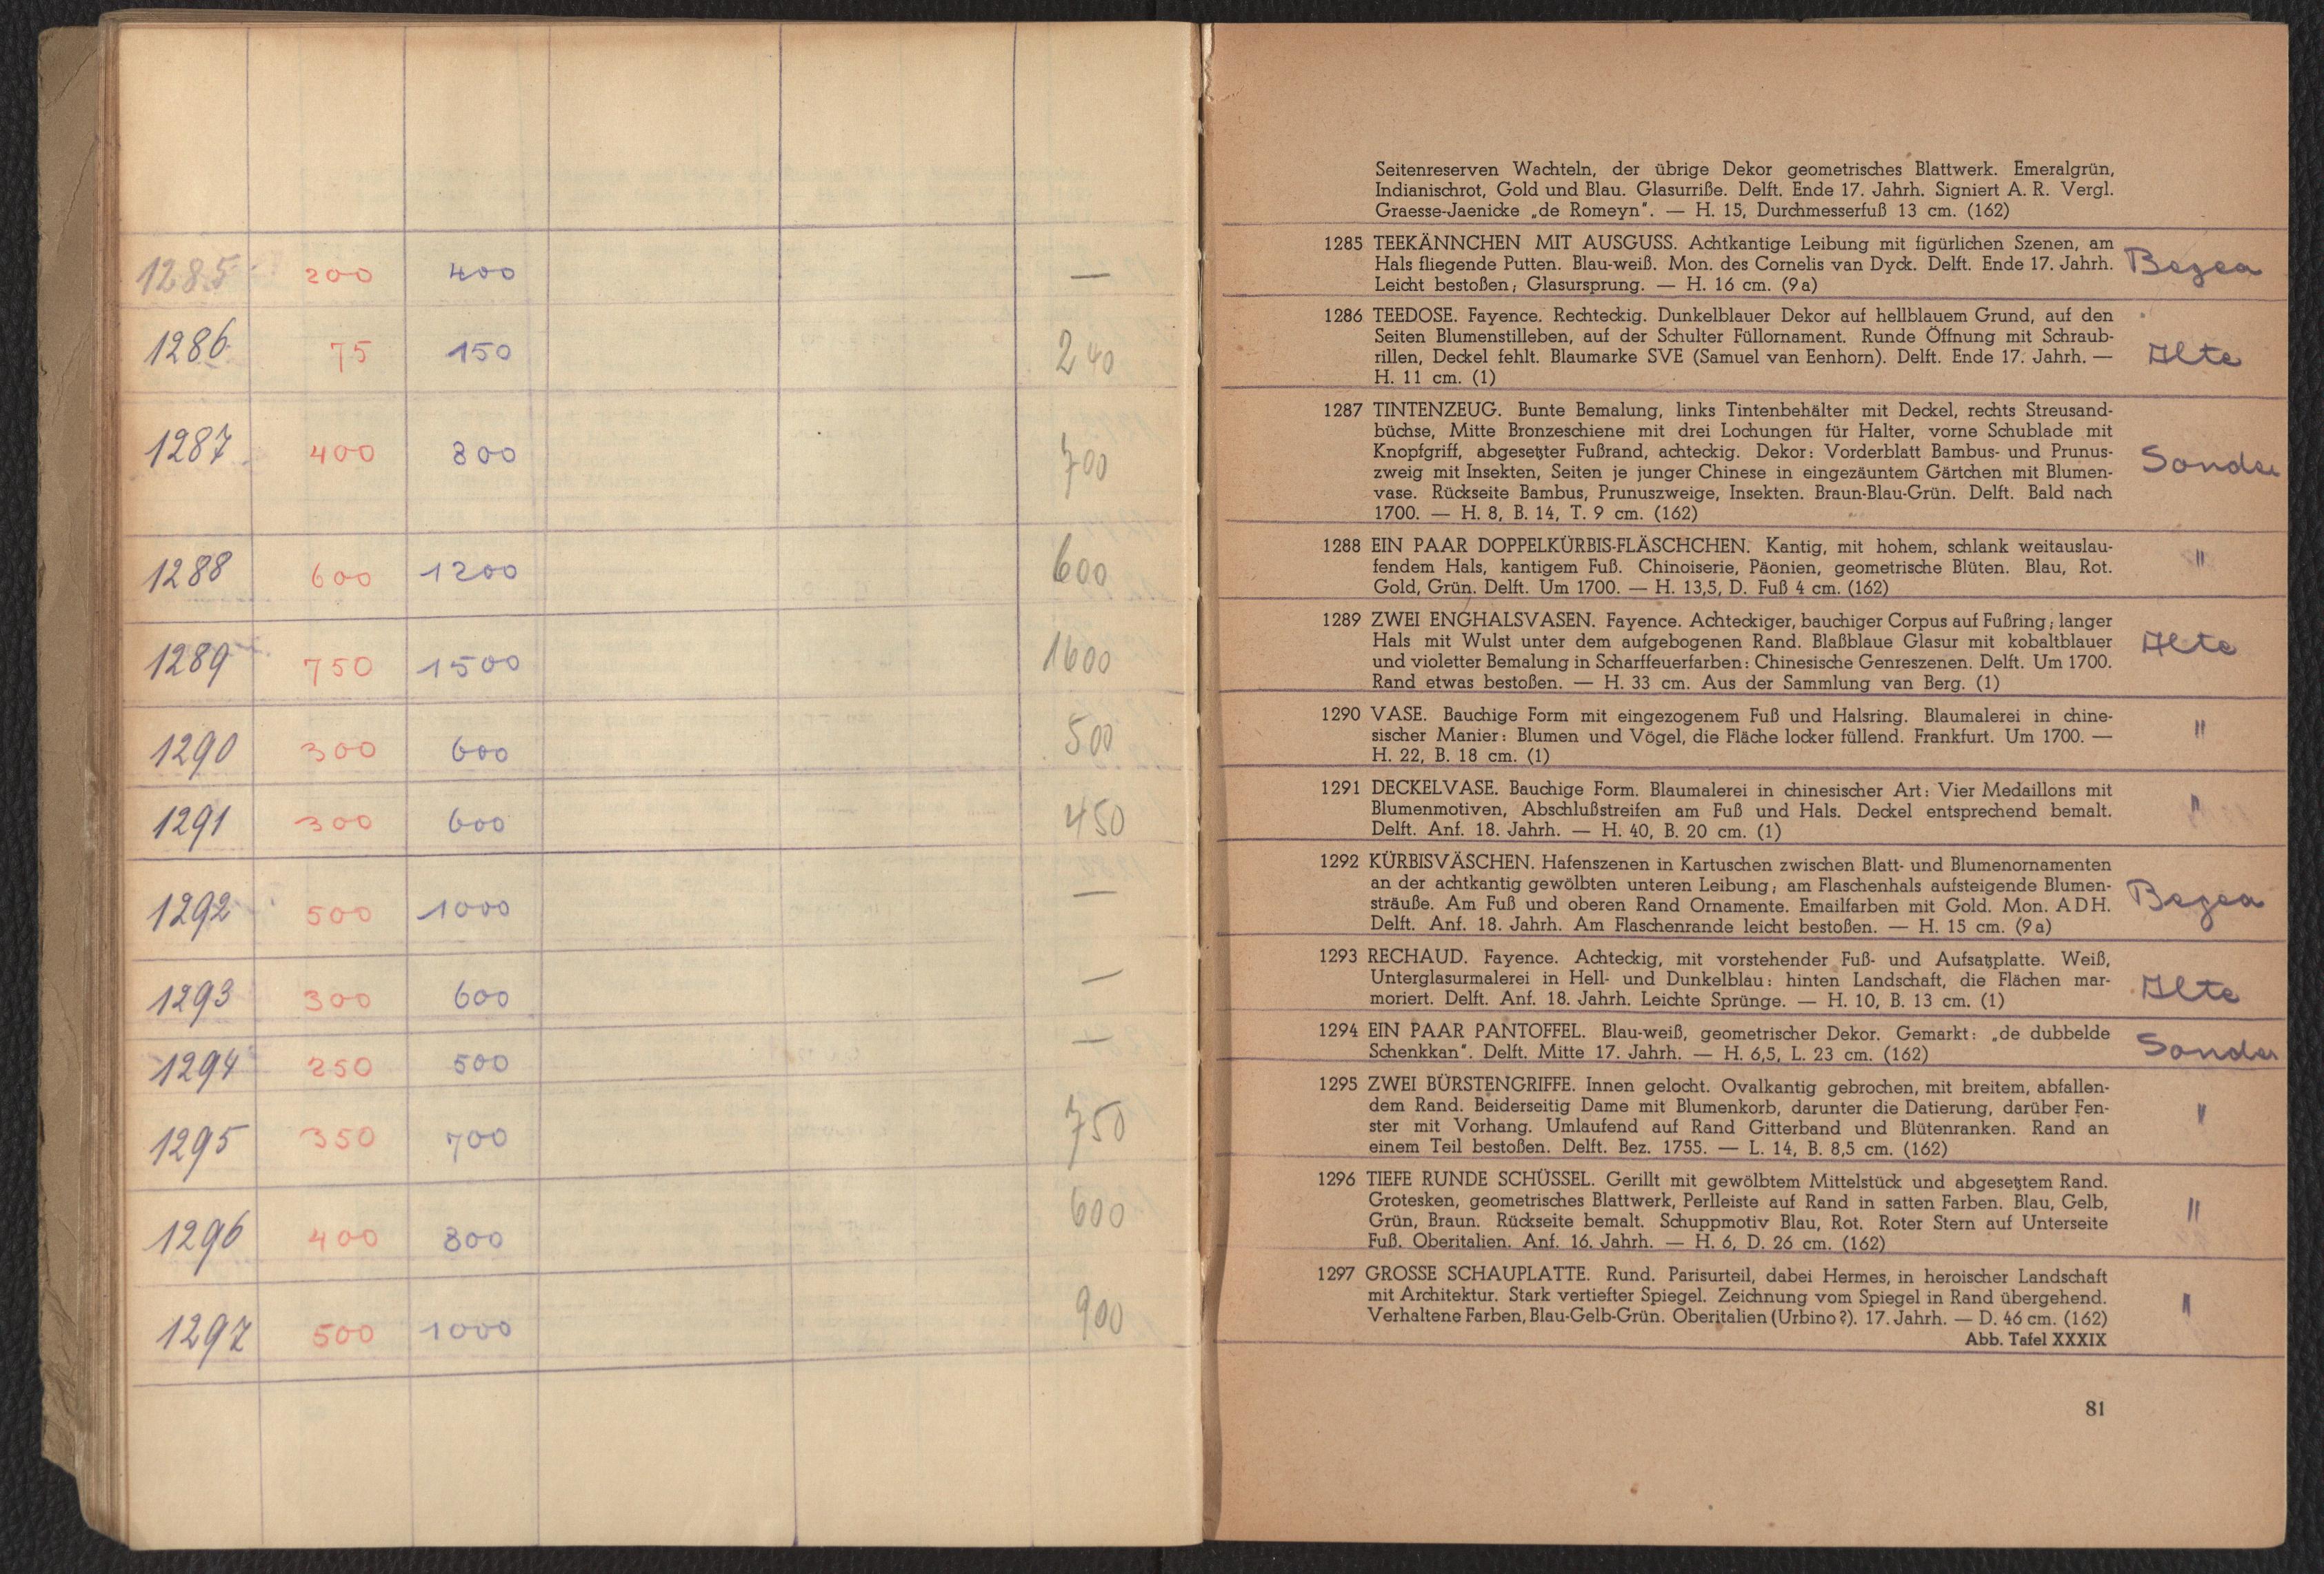 1285 200 400 —
1286 75 150 240
1287 400 800 700
1288 600 1200 600
1289 750 1500 1600
1290 300 600 500
1291 300 600 450
1292 500 1000 —
1293 300 600 —
1294 250 500 —
1295 350 700 750
1296 400 800 600
1297 500 1000 900
Seitenreserven Wachteln, der übrige Dekor geometrisches Blattwerk. Emeralgrün,
Indianischrot, Gold und Blau. Glasurriße. Delft. Ende 17. Jahrh. Signiert A. R. Vergl.
Graesse-Jaenicke „de Romeyn". — H. 15, Durchmesserfuß 13 cm. (162)
1285 TEEKÄNNCHEN MIT AUSGUSS. Achtkantige Leibung mit figürlichen Szenen, am
Hals fliegende Putten. Blau-weiß. Mon. des Cornelis van Dyck. Delft. Ende 17. Jahrh.
Leicht bestoßen; Glasursprung. — H. 16 cm. (9a)
1286 TEEDOSE. Fayence. Rechteckig. Dunkelblauer Dekor auf hellblauem Grund, auf den
Seiten Blumenstilleben, auf der Schulter Füllornament. Runde Öffnung mit Schraub-
rillen, Deckel fehlt. Blaumarke SVE (Samuel van Eenhorn). Delft. Ende 17. Jahrh. —
H. 11 cm. (1)
1287 TINTENZEUG. Bunte Bemalung, links Tintenbehälter mit Deckel, rechts Streusand-
büchse, Mitte Bronzeschiene mit drei Lochungen für Halter, vorne Schublade mit
Knopfgriff, abgesetzter Fußrand, achteckig. Dekor: Vorderblatt Bambus- und Prunus-
zweig mit Insekten, Seiten je junger Chinese in eingezäuntem Gärtchen mit Blumen-
vase. Rückseite Bambus, Prunuszweige, Insekten. Braun-Blau-Grün. Delft. Bald nach
1700. — H. 8, B. 14, T. 9 cm. (162)
Sonder
1288 EIN PAAR DOPPELKÜRBIS-FLÄSCHCHEN. Kantig, mit hohem, schlank weitauslau-
fendem Hals, kantigem Fuß. Chinoiserie, Päonien, geometrische Blüten. Blau, Rot.
Gold, Grün. Delft. Um 1700. — H. 13,5, D. Fuß 4 cm. (162)
"
1289 ZWEI ENGHALSVASEN. Fayence. Achteckiger, bauchiger Corpus auf Fußring; langer
Hals mit Wulst unter dem aufgebogenen Rand. Blaßblaue Glasur mit kobaltblauer
und violetter Bemalung in Scharffeuerfarben: Chinesische Genreszenen. Delft. Um 1700.
Rand etwas bestoßen. — H. 33 cm. Aus der Sammlung van Berg. (1)
1290 VASE. Bauchige Form mit eingezogenem Fuß und Halsring. Blaumalerei in chine-
sischer Manier: Blumen und Vögel, die Fläche locker füllend. Frankfurt. Um 1700. —
H. 22, B. 18 cm. (1)
"
1291 DECKELVASE. Bauchige Form. Blaumalerei in chinesischer Art: Vier Medaillons mit
Blumenmotiven, Abschlußstreifen am Fuß und Hals. Deckel entsprechend bemalt.
Delft. Anf. 18. Jahrh. — H. 40, B. 20 cm. (1)
"
1292 KÜRBISVÄSCHEN. Hafenszenen in Kartuschen zwischen Blatt- und Blumenornamenten
an der achtkantig gewölbten unteren Leibung; am Flaschenhals aufsteigende Blumen-
sträuße. Am Fuß und oberen Rand Ornamente. Emailfarben mit Gold. Mon. ADH.
Delft. Anf. 18. Jahrh. Am Flaschenrande leicht bestoßen. — H. 15 cm. (9a)
1293 RECHAUD. Fayence. Achteckig, mit vorstehender Fuß- und Aufsatzplatte. Weiß,
Unterglasurmalerei in Hell- und Dunkelblau: hinten Landschaft, die Flächen mar-
moriert. Delft. Anf. 18. Jahrh. Leichte Sprünge. — H. 10, B. 13 cm. (1)
1294 EIN PAAR PANTOFFEL. Blau-weiß, geometrischer Dekor. Gemarkt: „de dubbelde
Schenkkan". Delft. Mitte 17. Jahrh. — H. 6,5, L. 23 cm. (162)
Sonder
1295 ZWEI BÜRSTENGRIFFE. Innen gelocht. Ovalkantig gebrochen, mit breitem, abfallen-
dem Rand. Beiderseitig Dame mit Blumenkorb, darunter die Datierung, darüber Fen-
ster mit Vorhang. Umlaufend auf Rand Gitterband und Blütenranken. Rand an
einem Teil bestoßen. Delft. Bez. 1755. — L. 14, B. 8,5 cm. (162)
"
1296 TIEFE RUNDE SCHÜSSEL. Gerillt mit gewölbtem Mittelstück und abgesetztem Rand.
Grotesken, geometrisches Blattwerk, Perlleiste auf Rand in satten Farben. Blau, Gelb,
Grün, Braun. Rückseite bemalt. Schuppmotiv Blau, Rot. Roter Stern auf Unterseite
Fuß. Oberitalien. Anf. 16. Jahrh. — H. 6, D. 26 cm. (162)
"
1297 GROSSE SCHAUPLATTE. Rund. Parisurteil, dabei Hermes, in heroischer Landschaft
mit Architektur. Stark vertiefter Spiegel. Zeichnung vom Spiegel in Rand übergehend.
Verhaltene Farben, Blau-Gelb-Grün. Oberitalien (Urbino?). 17. Jahrh. — D. 46 cm. (162)
Abb. Tafel XXXIX
"
81